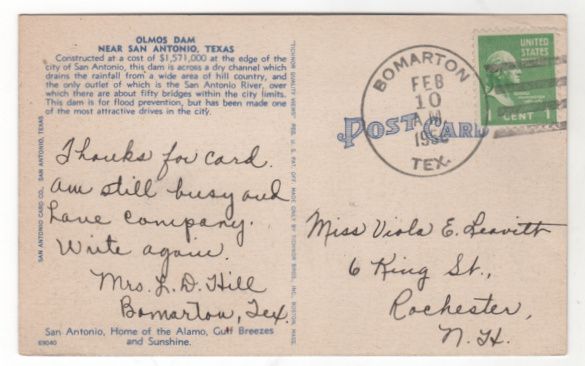 OLMOS DAM
NEAR SAN ANTONIO, TEXAS
Constructed at a cost of $1,571,000 at the edge of the
city of San Antonio, this dam is across a dry channel which
drains the rainfall from a wide area of hill country, and
the only outlet of which is the San Antonio River, over
which there are about fifty bridges within the city limits.
This dam is for flood prevention, but has been made one
of the most attractive drives in the city.
Thanks for card.
am still busy and
have company.
Write again.
Mrs. L. D. Hill
Bomarton, Tex.
San Antonio, Home of the Alamo, Gulf Breezes
and Sunshine.
69040
SAN ANTONIO CARD CO., SAN ANTONIO, TEXAS
"TICHNOR QUALITY VIEWS" REG. U. S. PAT. OFF. MADE ONLY BY TICHNOR BROS., INC., BOSTON, MASS.
POST CARD
BOMARTON
FEB
10
A M
TEX.
UNITED
STATES
1 CENT 1
Miss Viola E. Leavitt
6 King St.,
Rochester,
N. H.